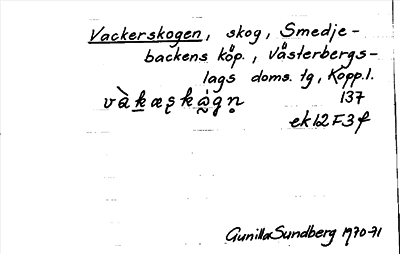 Vackerskogen, skog, Smedje-
backens köp., Västerbergs-
lags doms. tg, Kopp.l.
137
ek12F3f
Gunilla Sundberg 1970-71